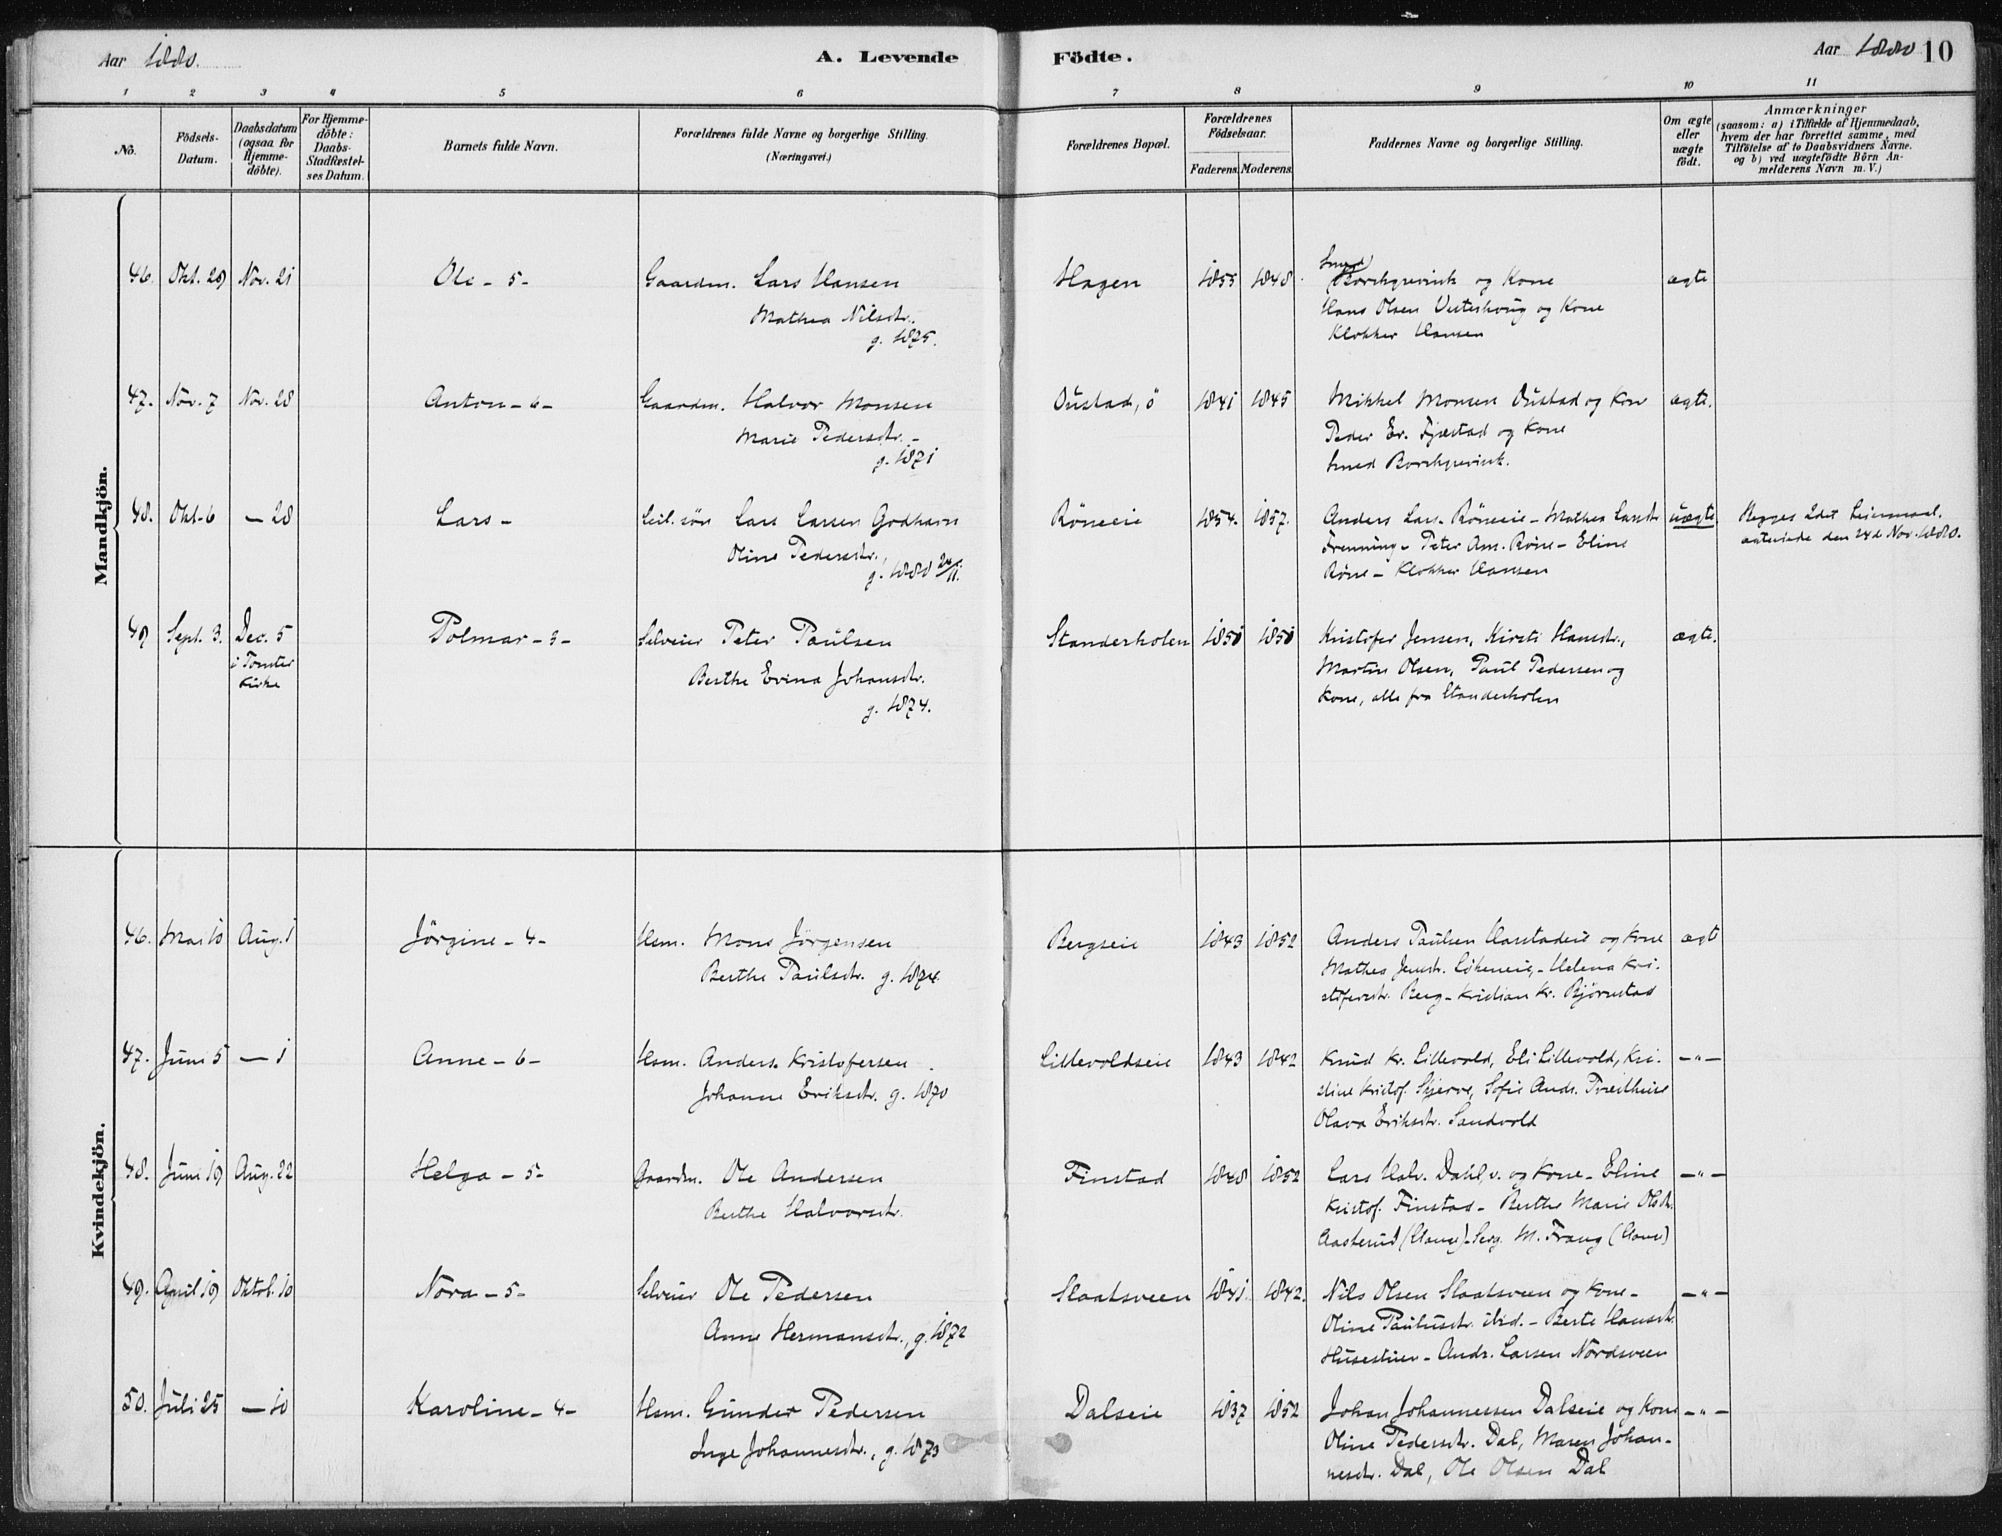 Aar 1880.
A. Levende Födte.
Aar 1880 10
1 2 3 4 5 6 7 8 9 10 11
No.
Födsels-Datum.
Daabsdatum (ogsaa for Hjemme-döbte).
For Hjemme-döbte: Daabs-Stadfæstel-ses Datum.
Barnets fulde Navn.
Forældrenes fulde Navne og borgerlige Stilling. (Næringsvei.)
Forældrenes Bopæl.
Forældrenes Födselsaar.
Faderens. Moderens.
Faddernes Navne og borgerlige Stilling.
Om ægte eller uægte födt.
Anmærkninger
(saasom: a) i Tilfælde af Hjemmedaab,
hvem der har forrettet samme, med
Tilföielse af to Daabsvidners Navne.
og b) ved uægtefödte Börn An-
melderens Navn m. V.)
Mandkjön.
46. Okt. 29 Nov. 21 Ole - 5 - Gaardm. Lars Hansen Hagen 1855 1848. Smed Borchgrevink og Kone ægte
Mathea Nilsdtr. Hans Olsen Vesterhoug og Kone
g. 1875. Klokker Hansen
47. Nov. 7 Nov. 28 Anton - 6 - Gaardm. Halvor Monsen Oustad, ö 1841 1845 Mikkel Monsen Oustad og Kone ægte.
Marie Pedersdtr. - Peder Er. Fjæstad og Kone
g. 1871 Smed Borchgrevink.
48. Okt. 6 — 28 Lars - Lars Larsen Godhavn Röneeie 1854. 1857. Anders Lars. Röneeie - Mathea Larsdtr uægte. Begges 2det Leiermaal.
Oline Pedersdtr., Frenning - Peter Am. Röne - Eline ægteviede den 24de Nov. 1880.
g. 1880 24/11. Röne - Klokker Hansen
49 Sept. 3. Dec. 5 Polmar - 3 - Selveier Peter Paulsen Standerholen 1850 1850 Kristofer Jensen, Kirsti Hansdtr., ægte.
i Tomter Berthe Evina Johansdtr. Martin Olsen, Paul Pedersen og
Kirke g. 1874. Kone, alle fra Standerholen
Kvindekjön.
46. Mai 10 Aug. 1 Jörgine - 4 - Hsm. Mons Jörgensen Bergseie 1843 1852 Anders Paulsen Harstadeie og Kone ægt
Berthe Paulsdtr. g. 1874. Mathea Jensdtr. Lökeneie, - Helena Kri-
stofersdtr. Berg - Kristian Kr. Björnstad
47. Juni 5 — 1 Anne - 6 - Hsm. Anders Kristofersen Lillevoldseie 1843 1842 Knud Kr. Lillevold, Eli Lillevold, Kri- — " —
Johanne Eriksdtr. g. 1870 stine Kristof. Skjerve, Sofie Andr.
Olava Eriksdtr. Sandvold
48. Juni 19 Aug. 22 Helga - 5 - Gaardm. Ole Andersen Finstad 1848 1852 Lars Halv. Dahl, v. og Kone - Eline — " —
Berthe Halvorsdtr. Kristof. Finstad - Berthe Marie Olsdtr.
Aasterud - Serg. M. Frang
49. April 19 Oktob. 10 Nora - 5 - Selveier Ole Pedersen Slaatsveen 1841. 1842. Nils Olsen Slaatsveen og Kone - — " —
Anne Hermansdtr., g. 1872 Oline Paulusdtr. ibid. - Berte Hansdtr.
Husestuen - Andr. Larsen Nordsveen
50. Juli 25 — 10 Karoline - 4 - Hsm. Gunder Pedersen Dalseie 1837 1852 Johan Johannessen Dalseie og Kone — " —
Inge Johannesdtr., g. 1873 Oline Pedersdtr. Dal, Maren Johan-
nesdtr. Dal, Ole Olsen Dal